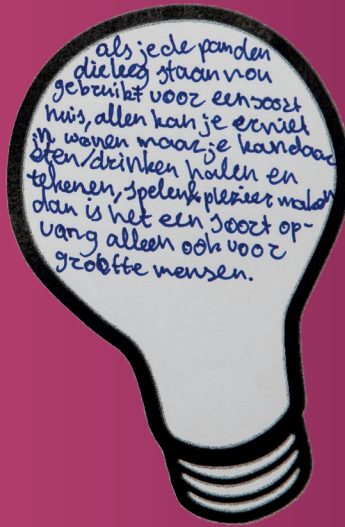 als je de panden
die leeg staan nou
gebruikt voor een soort
huis, allen kan je er niet
in wonen maar je kan daar
eten/drinken halen en
tekenen, spelen & plezier maken
dan is het een soort op-
vang alleen ook voor
grootte mensen.